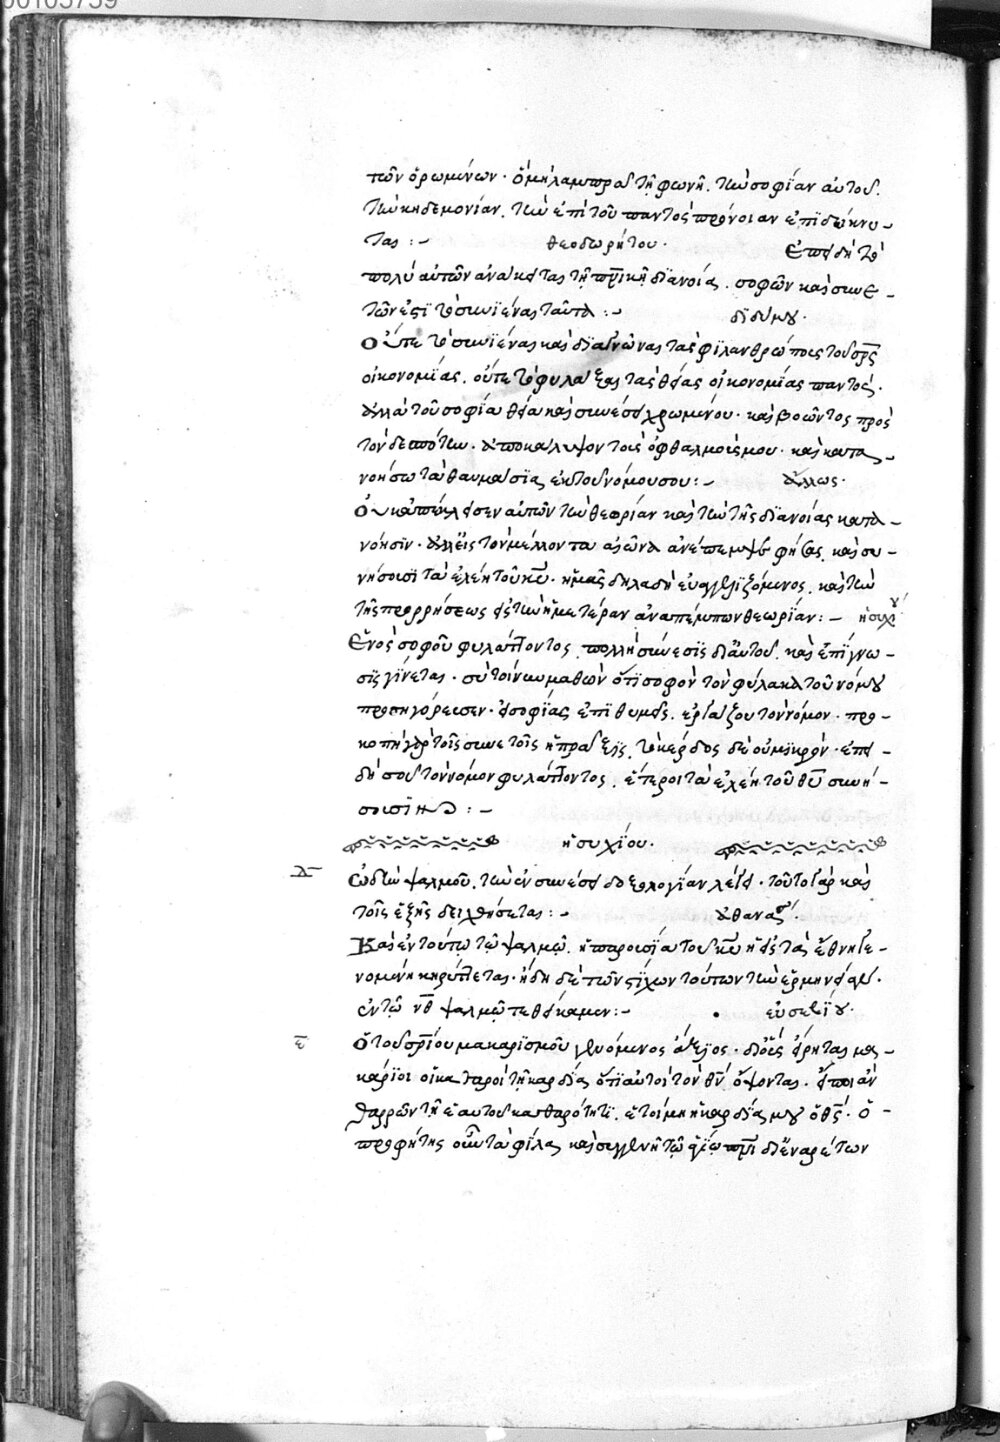 00105759
τῶν ὁρωμένων. ὁ μὴ λαμπρᾷ τῇ φωνῇ. τὴν σοφίαν αὐτοῦ.
τὴν κηδεμονίαν. τὴν ἐπὶ τοῦ παντὸς πρόνοιαν ἐπιδείκνυ-
ται :- θεοδωρήτου. Ἐπειδὴ τὸ
πολὺ αὐτῶν ἀνάκειται τῇ πνικῇ διανοίᾳ. σοφῶν καὶ συνε-
τῶν ἐστὶ τὸ συνιέναι ταῦτα :- διδύμου.
Οὔτε τὸ συνιέναι καὶ διαγνῶναι τὰς φιλανθρώπους τοῦ σρς
οἰκονομίας. οὔτε τὸ φυλάξαι τὰς θείας οἰκονομίας παντός.
ἀλλὰ τοῦ σοφίᾳ θείᾳ καὶ συνέσει χρωμένου. καὶ βοῶντος πρὸς
τὸν δεσπότην. ἀποκάλυψον τοὺς ὀφθαλμούς μου. καὶ κατα-
νοήσω τὰ θαυμάσιά ἐκ τοῦ νόμου σου :- ἄλλως.
Οὐκ ἀπέκλεισεν αὐτῶν τὴν θεωρίαν καὶ τὴν τῆς διανοίας κατα-
νόησιν. ἀλλ' εἰς τὸν μέλλοντα αἰῶνα ἀνέπεμψε φήσας. καὶ συ-
νήσουσι τὰ ἐλέη τοῦ κυ. ἡμᾶς δηλαδὴ εὐαγγελιζόμενος. καὶ τὴν
τῆς προρρήσεως εἰς τὴν ἡμετέραν ἀναπέμπων θεωρίαν :- ἡσυχίου
Ἑνὸς σοφοῦ φυλάττοντος. πολλὴ σύνεσις δι' αὐτοῦ. καὶ ἐπίγνω-
σις γίνεται. σὺ τοίνυν μαθὼν ὅτι σοφὸν τὸν φύλακα τοῦ νόμου
προσηγόρευσεν. εἰ σοφίας ἐπιθυμεῖς. ἐργάζου τὸν νόμον. προ-
κοπὴ γὰρ τοῖς συνετοῖς ἡ πρᾶξις. τὸ κέρδος δὲ οὐ μικρόν. ἐπει-
δὴ σοῦ τὸν νόμον φυλάττοντος. ἕτεροι τὰ ἐλέη τοῦ θυ συνή-
σουσιν :-
ἡσυχίου.
Ὠδὴν ψαλμοῦ. τὴν ἐν συνέσει δοξολογίαν λέγει. τοῦτο γὰρ καὶ
τοῖς ἑξῆς δειχθήσεται :- ἀθανασί.
Καὶ ἐν τούτῳ τῷ ψαλμῷ. ἡ παρουσία τοῦ κυ ἡ εἰς τὰ ἔθνη γε-
νομένη κηρύττεται. ἤδη δὲ τῶν στίχων τούτων τὴν ἑρμηνείαν.
ἐν τῷ νθ ψαλμῷ τεθείκαμεν :- εὐσεβίου.
ε Ὁ τοῦ σρίου μακαρισμοῦ γενόμενος ἄξιος. δι' οὗ εἴρηται μα-
κάριοι οἱ καθαροὶ τῇ καρδίᾳ ὅτι αὐτοὶ τὸν θν ὄψονται. εἴποι ἂν
θαρρῶν τῇ ἑαυτοῦ καθαρότητι. ἑτοίμη ἡ καρδία μου ὁ θς. ὁ-
προφήτης οὖν τὰ φίλα καὶ συγγενῆ τῷ ἁγίῳ πνι δι' ἐναρέτων